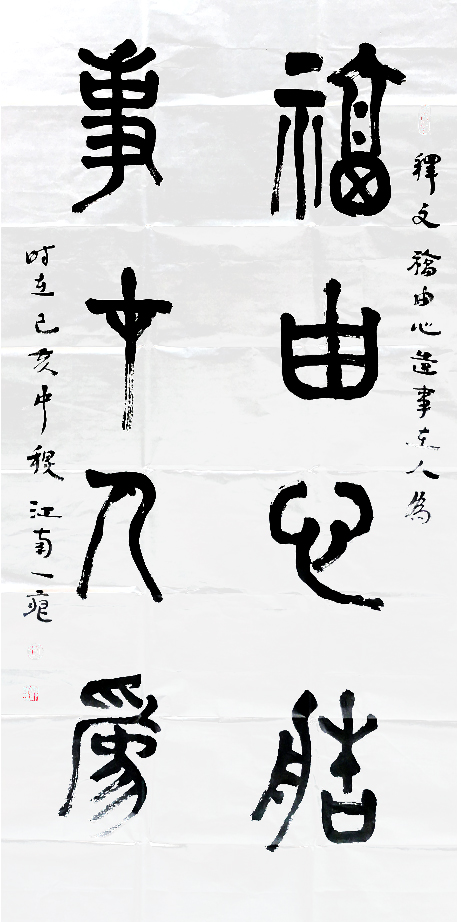 释文 福由心造事在人為
福由心造
事在人為
时在己亥中秋 江南一